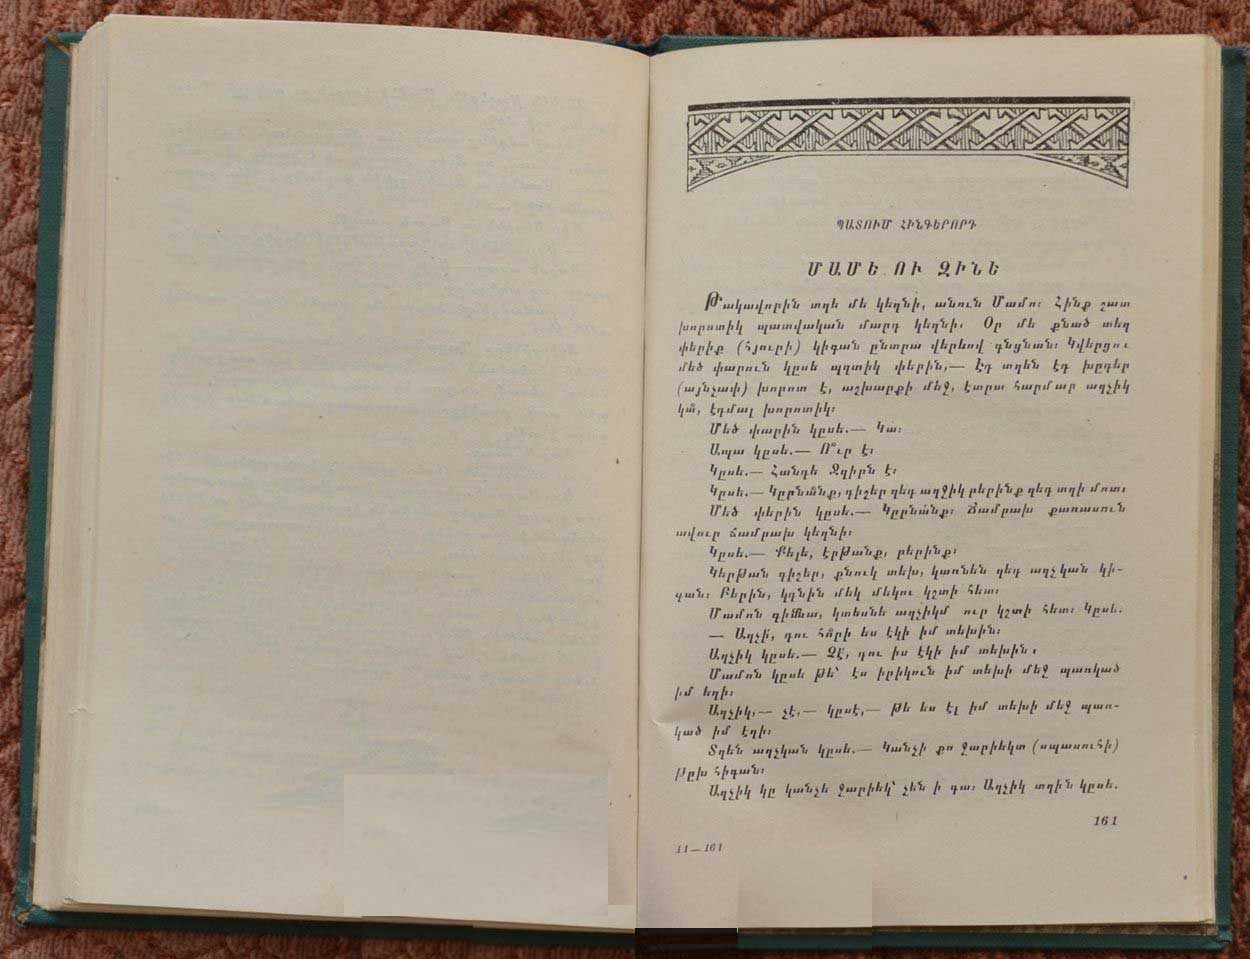 ՊԱՏՈՒՄ ՀԻՆԳԵՐՈՐԴ
ՄԱՄԵ ՈՒ ԶԻՆԵ
Թակավորին տղե մե կեղնի, անուն Մամո։ Հինք շատ
խորոտիկ պատվական մարդ կեղնի։ Օր մե քնած տեղ
փերիք (հյուրի) կիգան ընտրա վերևով գնցնան։ Կվերցու
մեծ փարուն կըսե պղտիկ փերին,— Էդ տղեն էդ խըդեր
(այնչափ) խորոտ է, աշխարքի մեջ, էտրա հարմար աղչիկ
կա՞, էդմալ խորոտիկ։
Մեծ փարին կըսե.— Կա։
Ապա կըսե.— Ո՞ւր է։
Կըսե.— Հանդե Ջզիրն է։
Կըսե.— Կըրնա՞նք, գիշեր զեդ աղջիկ բերինք զեդ տղի մոտ։
Մեծ փերին կըսե.— Կըրնանք։ Ճամրախ քառասուն
ավուր ճամրախ կեղնի։
Կըսե.— Քելե, էրթանք, բերինք։
Կերթան գիշեր, քնուկ տեխ, կառնեն զեդ աղչկան կի-
գան։ Բերին, կդնին մեկ մեկու կշտի հետ։
Մամոն զիննա, կտեսնե աղչիկմ ուր կշտի հետ։ Կըսե.
— Աղչի՛, դու հո՞րի ես էկի իմ տեխին։
Աղչիկ կըսե.— Չէ, դու իս էկի իմ տեխին։
Մամոն կըսե թե՝ էս իրիկուն իմ տեխի մեջ պառկած
իմ եղի։
Աղչիկ,— չէ,— կըսէ,— թե ես էլ իմ տեխի մեջ պառ-
կած իմ էղի։
Տղեն աղչկան կըսե.— Կանչի քո ջարիեկտ (սպասուհի)
թըխ հիգան։
Աղչիկ կը կանչե ջարիեկ՝ չեն ի գա։ Աղչիկ տղին կըսե.
161
11—161